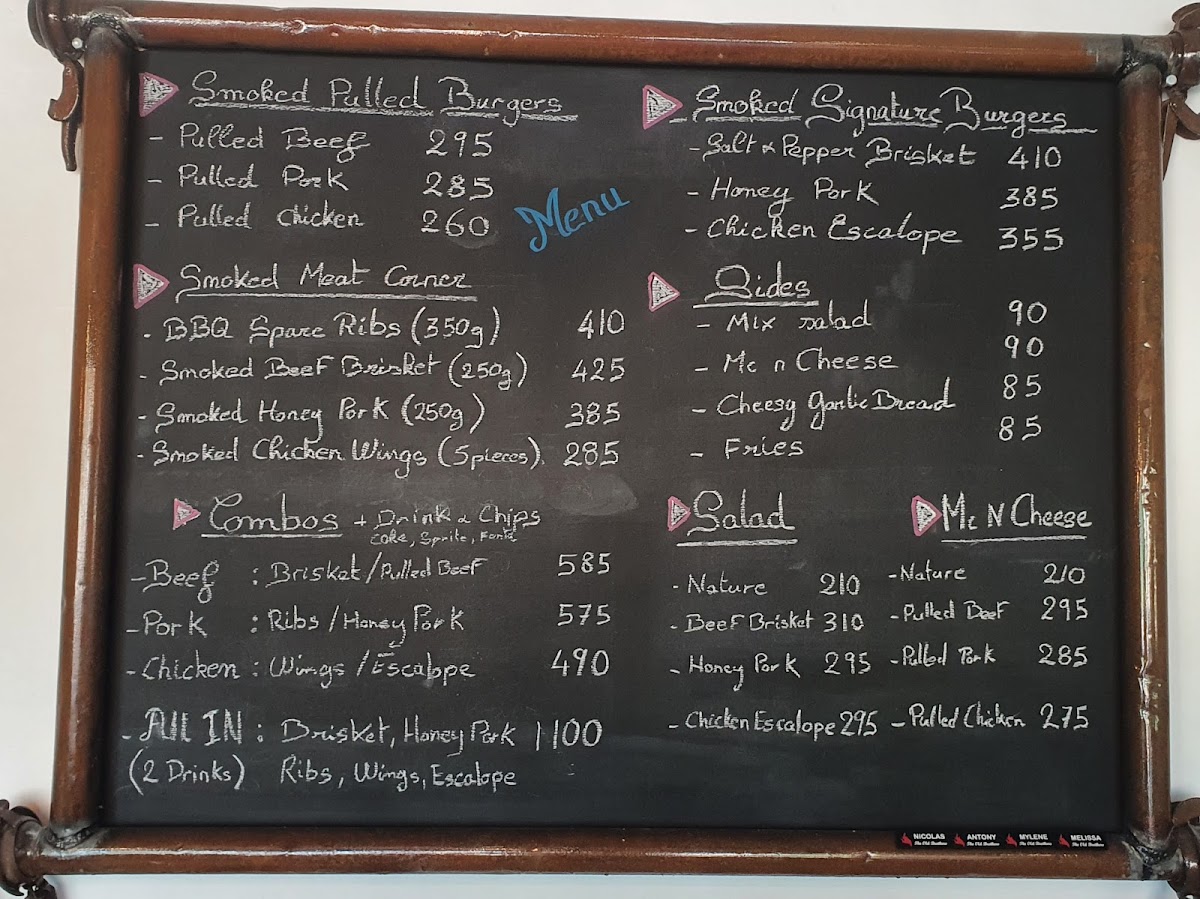 Smoked Pulled Burgers
- Pulled Beef 295
- Pulled Pork 285
- Pulled chicken 260
Menu
Smoked Signature Burgers
- Salt & Pepper Brisket 410
- Honey Pork 385
- Chicken Escalope 355
Smoked Meat Corner
- BBQ Spare Ribs (350g) 410
- Smoked Beef Brisket (250g) 425
- Smoked Honey Pork (250g) 385
- Smoked Chicken Wings (5pieces). 285
Sides
- Mix salad 90
- Mc n Cheese 90
- Cheesy garlic Bread 85
- Fries 85
Combos + Drink & Chips
Coke, Sprite, Fanta
- Beef : Brisket/Pulled Beef 585
- Pork : Ribs/Honey Pork 575
- Chicken : Wings/Escalope 490
- All IN : Brisket, Honey Pork 1100
(2 Drinks) Ribs, Wings, Escalope
Salad
- Nature 210
- Beef Brisket 310
- Honey Pork 295
- Chicken Escalope 295
Mc N Cheese
- Nature 210
- Pulled Beef 295
- Pulled Pork 285
- Pulled Chicken 275
NICOLAS ANTONY MYLENE MELISSA